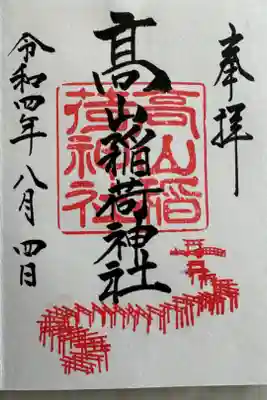 奉拝
髙山稲荷神社
高山稲荷神社
令和四年八月四日